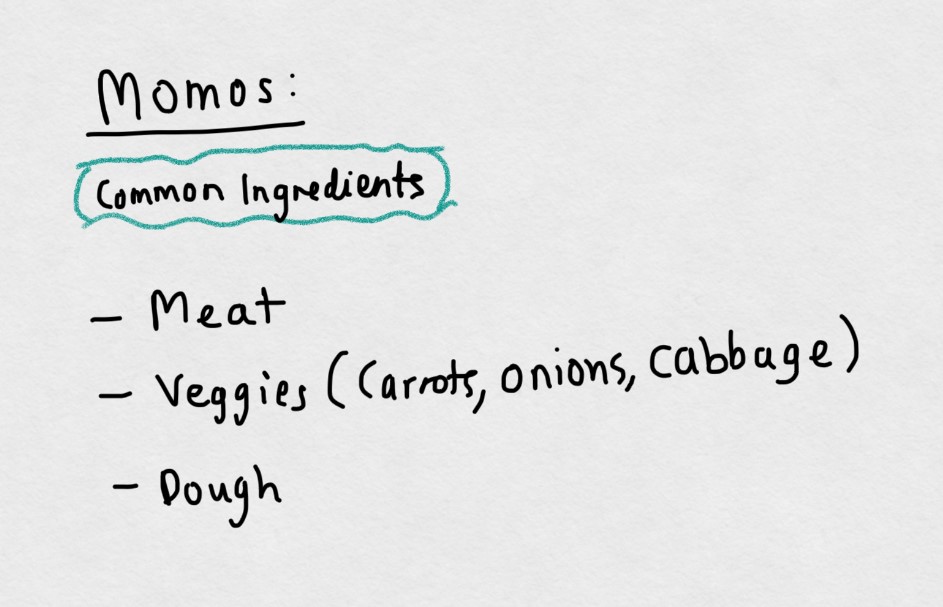 Momos:
Common Ingredients
- Meat
- Veggies (Carrots, onions, cabbage)
- Dough